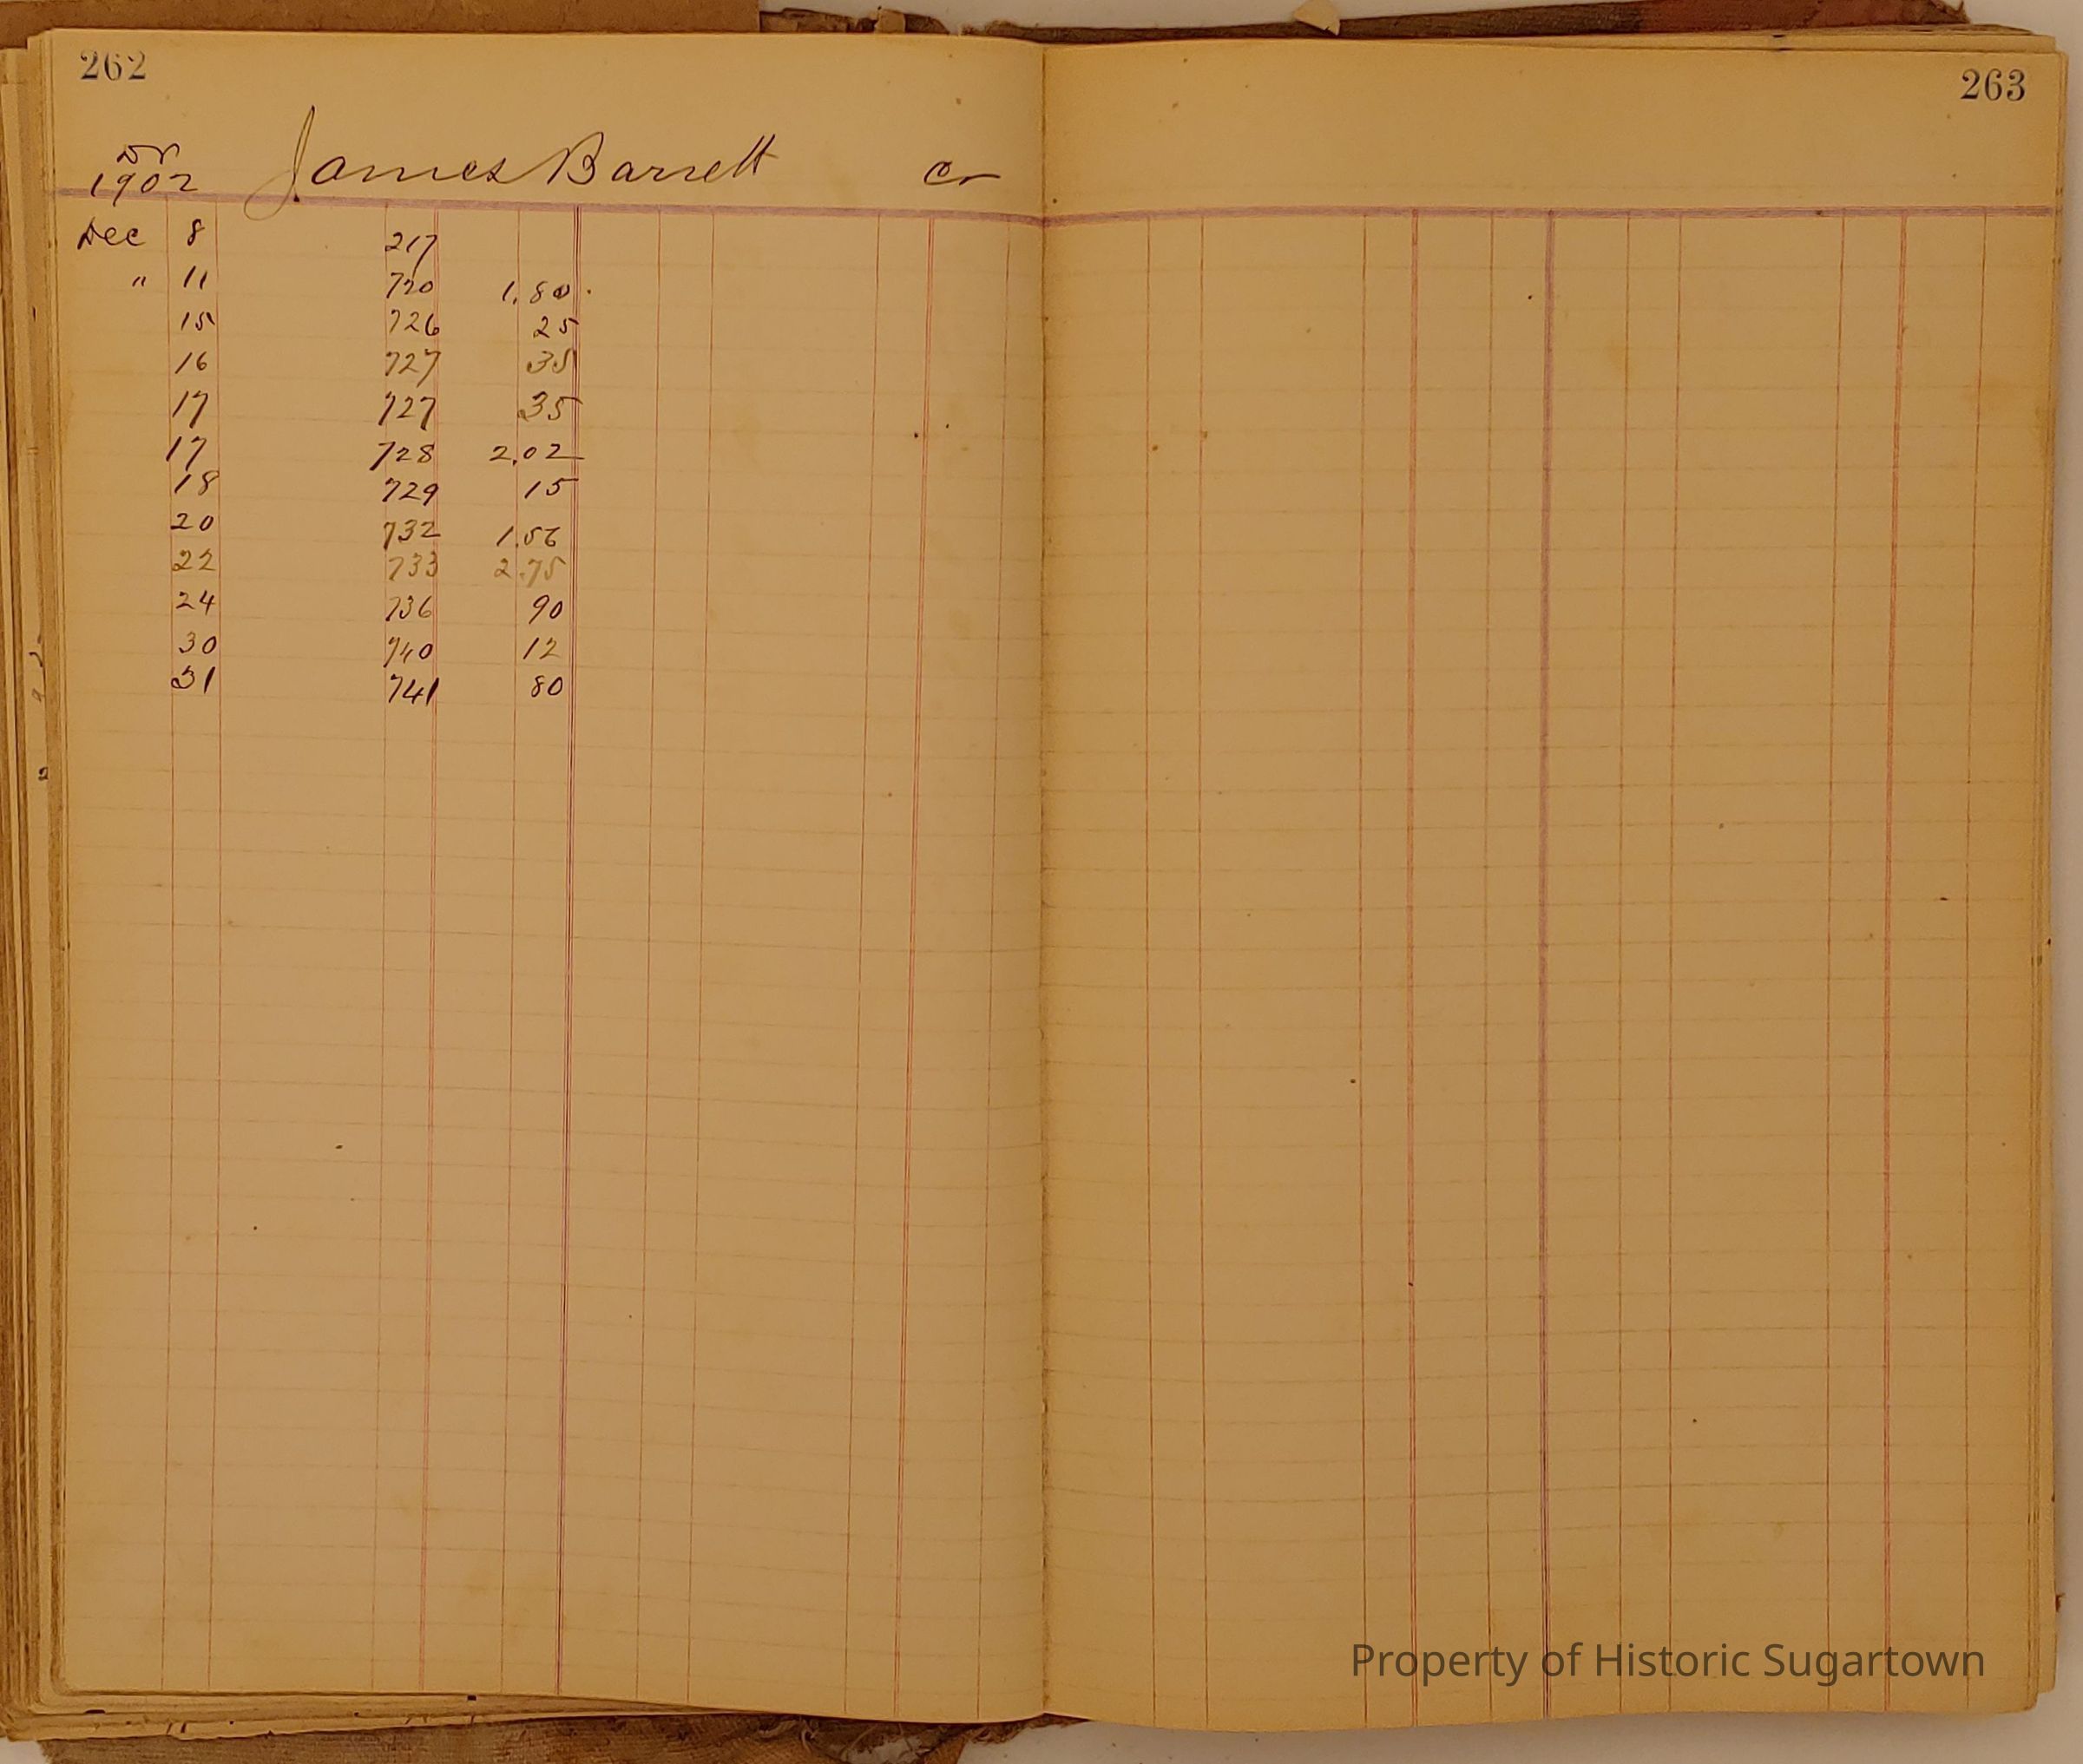 262
263
Dr James Barrett Cr
1902
Dec 8 217
" 11 720 1.80
15 726 25
16 727 35
17 727 35
17 728 2.02
18 729 15
20 732 1.56
22 733 2.75
24 736 90
30 740 12
31 741 80
Property of Historic Sugartown